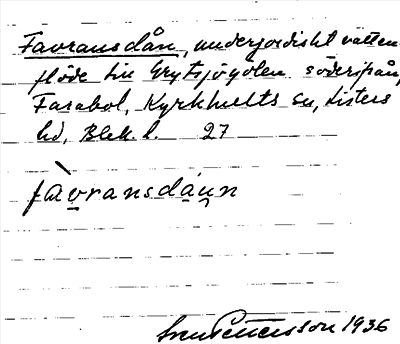 Favransdån, underjordiskt vatten
flöde till Grytsjögölen söderifrån,
Farabol, Kyrkhults sn, Listers
hd, Blek. l. 27
fàvransdáu̯n
Sven Pettersson 1936